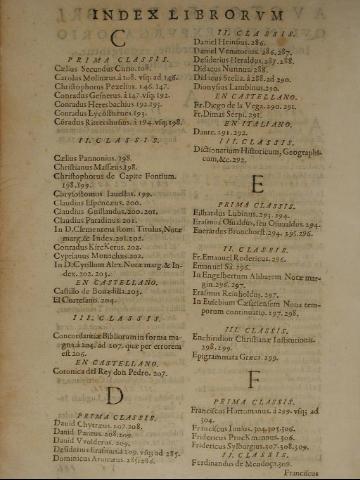 INDEX LIBRORVM
C
PRIMA CLASSIS.
Cælius Secundus Curio. 108.
Carolus Molinæus à 108. vsq; ad 146.
Christophorus Pezelius. 146. 147.
Conradus Gesnerus à 147. vsq; 192.
Conradus Heresbachius 192. 193.
Conradus Lycosthenes 193.
Conradus Rittershusius à 194. vsq; 198.
II. CLASSIS.
Cælius Pannonius. 198.
Christianus Massæus. 198.
Christophorus de Capite Fontium.
198. 199.
Chrysostomus Iauellus. 199.
Claudius Espencæus. 200.
Claudius Guillandus, 200. 201.
Claudius Paradinus 201.
In D. Clementem Rom. Titulus, Notæ
marg. & Index. 201. 202.
Conradus Kircherus. 202.
Cyprianus Monachus. 202.
In D. Cyrillum Alex. Notæ marg. & In-
dex. 202. 203.
EN CASTELLANO.
Castillo de Bouadilla. 203.
El Cortesano. 204.
III. CLASSIS.
Concordantiæ Bibliorum in forma ma-
gna à 204. ad 207. quæ per errorem
est 206.
EN CASTELLANO.
Coronica del Rey don Pedro. 207.
D
PRIMA CLASSIS.
Dauid Chytræus 207. 208.
Dauid Pareus. 208. 209.
Dauid Vvolderus. 209.
Desiderius Erasmus à 209. vsq; ad 285.
Dominicus Arumæus 285. 286.
II. CLASSIS.
Daniel Heinsius. 286.
Daniel Venatorius. 286. 287.
Desiderius Heraldus. 287. 288.
Didacus Nunnus. 288.
Didacus Stella. à 288. ad 290.
Dionysius Lambinus. 290.
EN CASTELLANO.
Fr. Diego de la Vega. 290. 291.
Fr. Dimas Serpi. 291.
EN ITALIANO.
Dante. 291. 292.
III. CLASSIS.
Dictionarium Historicum, Geographi-
cum, &c. 292.
E
PRIMA CLASSIS.
Eilhardus Lubinus. 293. 294.
Erasmus Osualdus, seu Osualdus. 294.
Euerardus Bronchorst. 294. 295. 296.
II. CLASSIS.
Fr. Emanuel Rodericus. 296.
Emanuel Sà. 296.
In Engelbertum Abbatem Notæ mar-
gin. 296. 297.
Erasmus Reinholdus. 297.
In Eusebium Cæsariensem Nota tem-
porum continuatio. 297. 298.
III. CLASSIS.
Enchiridion Christianæ Institutionis.
298. 299.
Epigrammata Græca. 299.
F
PRIMA CLASSIS.
Franciscus Hottmannus. à 299. vsq; ad
304.
Franciscus Iunius. 304. 305. 306.
Fridericus Prockmannus. 306.
Fridericus Sylburgius. 307. 308. 309.
II. CLASSIS.
Ferdinandus de Mendoça. 309.
Franciscus